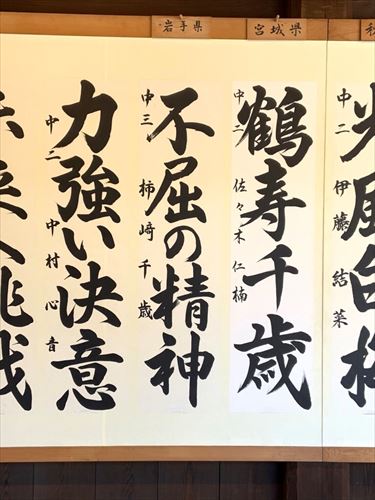 岩手県
宮城県
中二 伊藤結菜
鶴寿千歳
中二 佐々木仁楠
不屈の精神
中三 柿崎千歳
力強い決意
中二 中村心音
未来へ挑戦